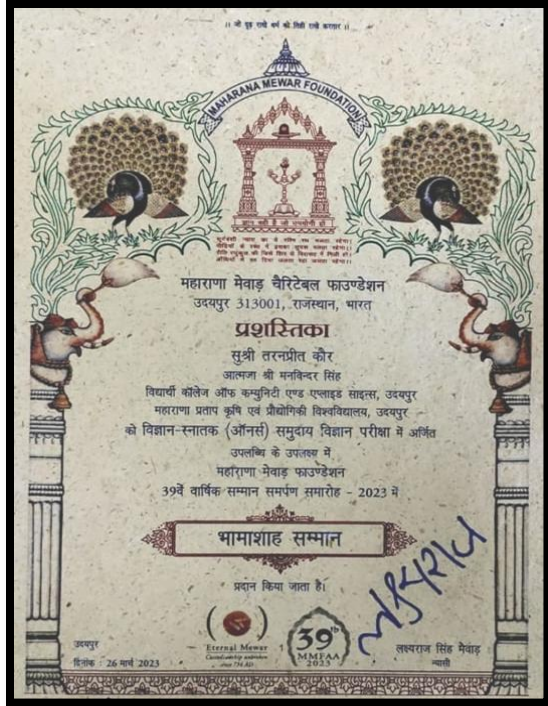 ।। जो दृढ़ राखे धर्म को तिही राखे करतार ।।
MAHARANA MEWAR FOUNDATION
महाराणा मेवाड़ चैरिटेबल फाउण्डेशन
उदयपुर 313001, राजस्थान, भारत
प्रशस्तिका
सुश्री तरनप्रीत कौर
आत्मजा श्री मनविन्दर सिंह
विद्यार्थी कॉलेज ऑफ कम्युनिटी एण्ड एप्लाइड साइन्स, उदयपुर
महाराणा प्रताप कृषि एवं प्रौद्योगिकी विश्वविद्यालय, उदयपुर
को विज्ञान-स्नातक (ऑनर्स) समुदाय विज्ञान परीक्षा में अर्जित
उपलब्धि के उपलक्ष्य में
महाराणा मेवाड़ फाउण्डेशन
39वें वार्षिक सम्मान समर्पण समारोह - 2023 में
भामाशाह सम्मान
प्रदान किया जाता है।
Eternal Mewar
Custodianship unbroken
since 734 AD
39th
MMFAA
2023
उदयपुर
दिनांक : 26 मार्च 2023
लक्ष्यराज सिंह मेवाड़
न्यासी